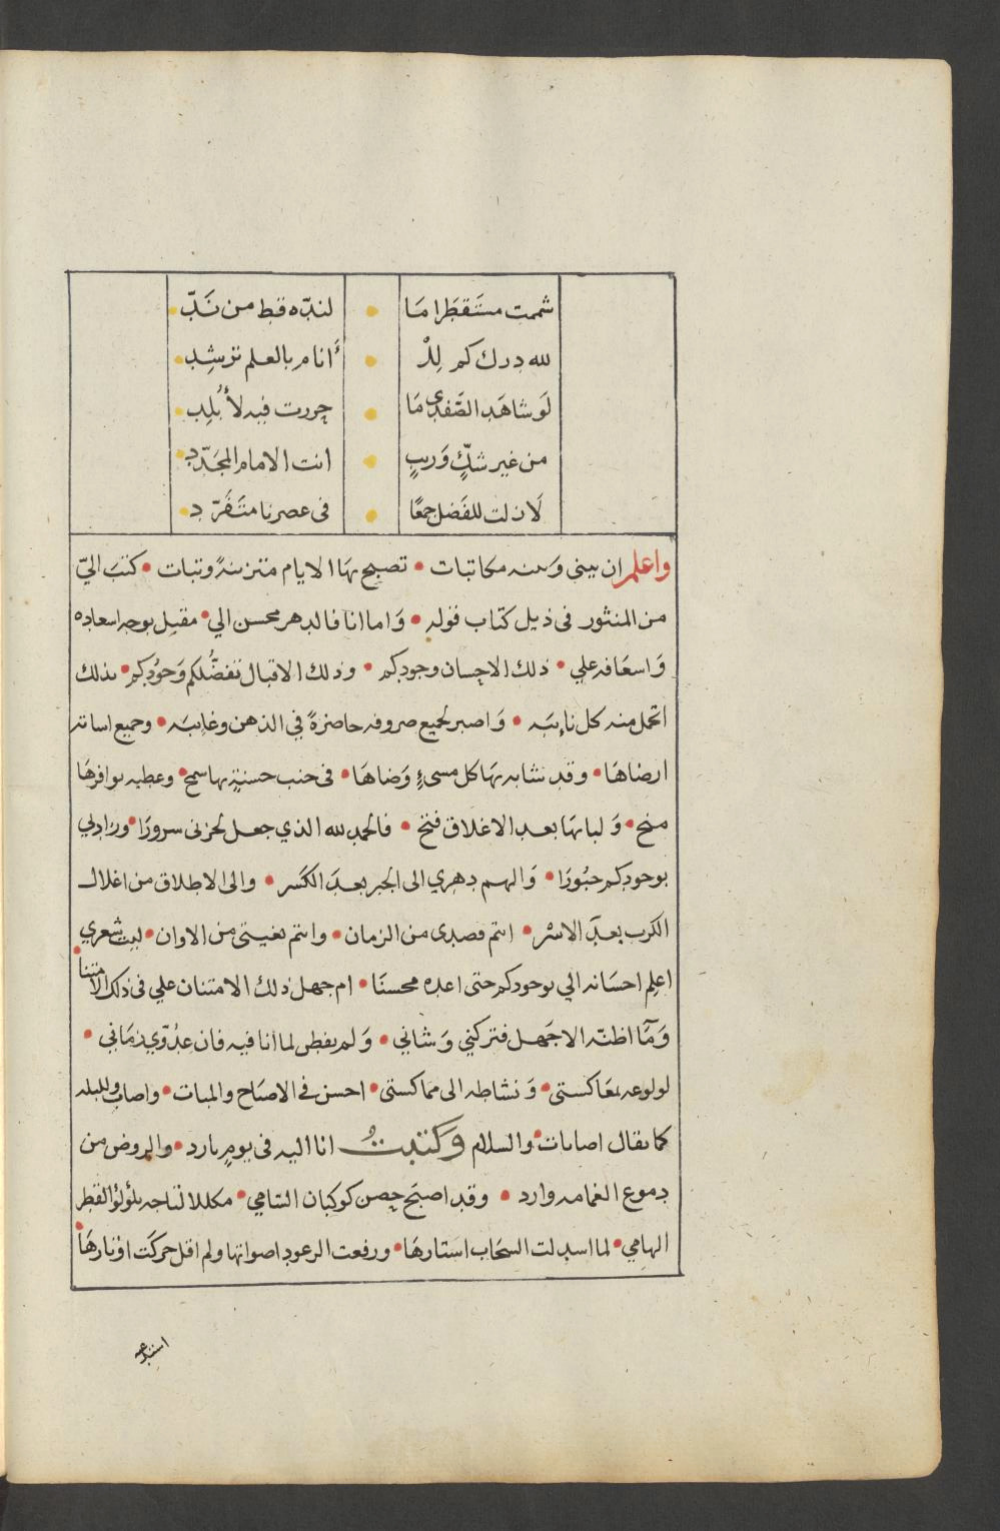 شممت مستقطرا مَا • لندّه قط من نَدّ
لله درك كم لِذْ • أنام بالعلم ترشِد
لَو شاهَد الصَّفدي مَا • حررت فيه لأُبْلِد
من غير شكٍّ وَريبٍ • انت الامام المجَدّد
لَازلت للفَضل جمعًا • فى عصرنا متَفَرّد
واعلم ان بينى وبينه مكاتبات • تصبح بهَا الايام متزينةً وتبات • كتبَ اليّ
من المنثور فى ذيل كتاب قوله • وَاما انا فالدهر محسن الي • مقبل بوجه اسعاده
وَاسعَافه علي • ذلك الاحسان وجودكم • وذلك الاقبال تفضّلكم وَجُودكم • بذلك
اتحمل منه كل نايبَه • وَاصبر لجميع صروفه حاضرةً في الذهن وغايبَه • وجميع اساته
ارضاهَا • وقد تشابه بهَا كل مسىءٍ وَضاهَا • فى جنب حسنةٍ بها سمح • وعطيه بوافرهَا
منح • وَلبابهَا بعد الاغلاق فتح • فالحمد لله الذي جعل لحزنى سرورًا • وزاد لي
بوجودكم حبُورًا • وَالهم دهري الى الجبر بعدَ الكَسر • والى الاطلاق من اغلال
الكرب بعدَ الاسْر • انتم قصدى من الزمان • وانتم بغيتى من الاوان • ليت شعري
اعلِم احسَانه الي بوجودكم حتى اعده محسنًا • ام جهل ذلك الامتنان علي فى ذلك الامتنا
وَمَا اظنّه الا جَهل فتركني وَشاني • وَلم يفطن لما انا فيه فان عدُوّي زمَاني •
لولوعه بمعَاكستى • وَنشاطه الى مماكستى • احسن في الاصبَاح والمبات • واصاب ولليله
كما يقال اصابات • والسلام وكتبتُ انا اليه فى يومٍ بارد • والروض من
دموع الغمامه وارد • وقد اصبَح حصن كوكبان السَّامي • مكللا تاجه بلؤلؤ القطر
الهامي • لما اسدلت السحَاب استارهَا • ورفعت الرعود اصواتها ولم اقل حركَت اوتارهَا